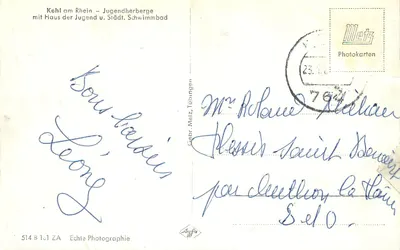 Kehl am Rhein – Jugendherberge
mit Haus der Jugend u. Städt. Schwimmbad
Bons baisers
Léone
514 8 1.1 ZA Echte Photographie
Gebr. Metz, Tübingen
Agfa
Metz
Photokarten
23.
76
Mr Roland
Plessis Saint Benoist
par
S et O